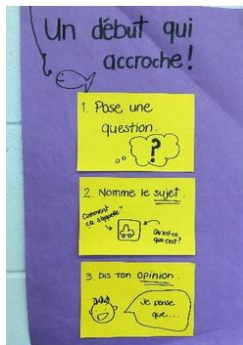 Un début qui
accroche!
1. Pose une
question.
?
2. Nomme le sujet.
Comment
ça s'appelle?
Qu'est-ce
que c'est?
3. Dis ton opinion.
Je pense
que...